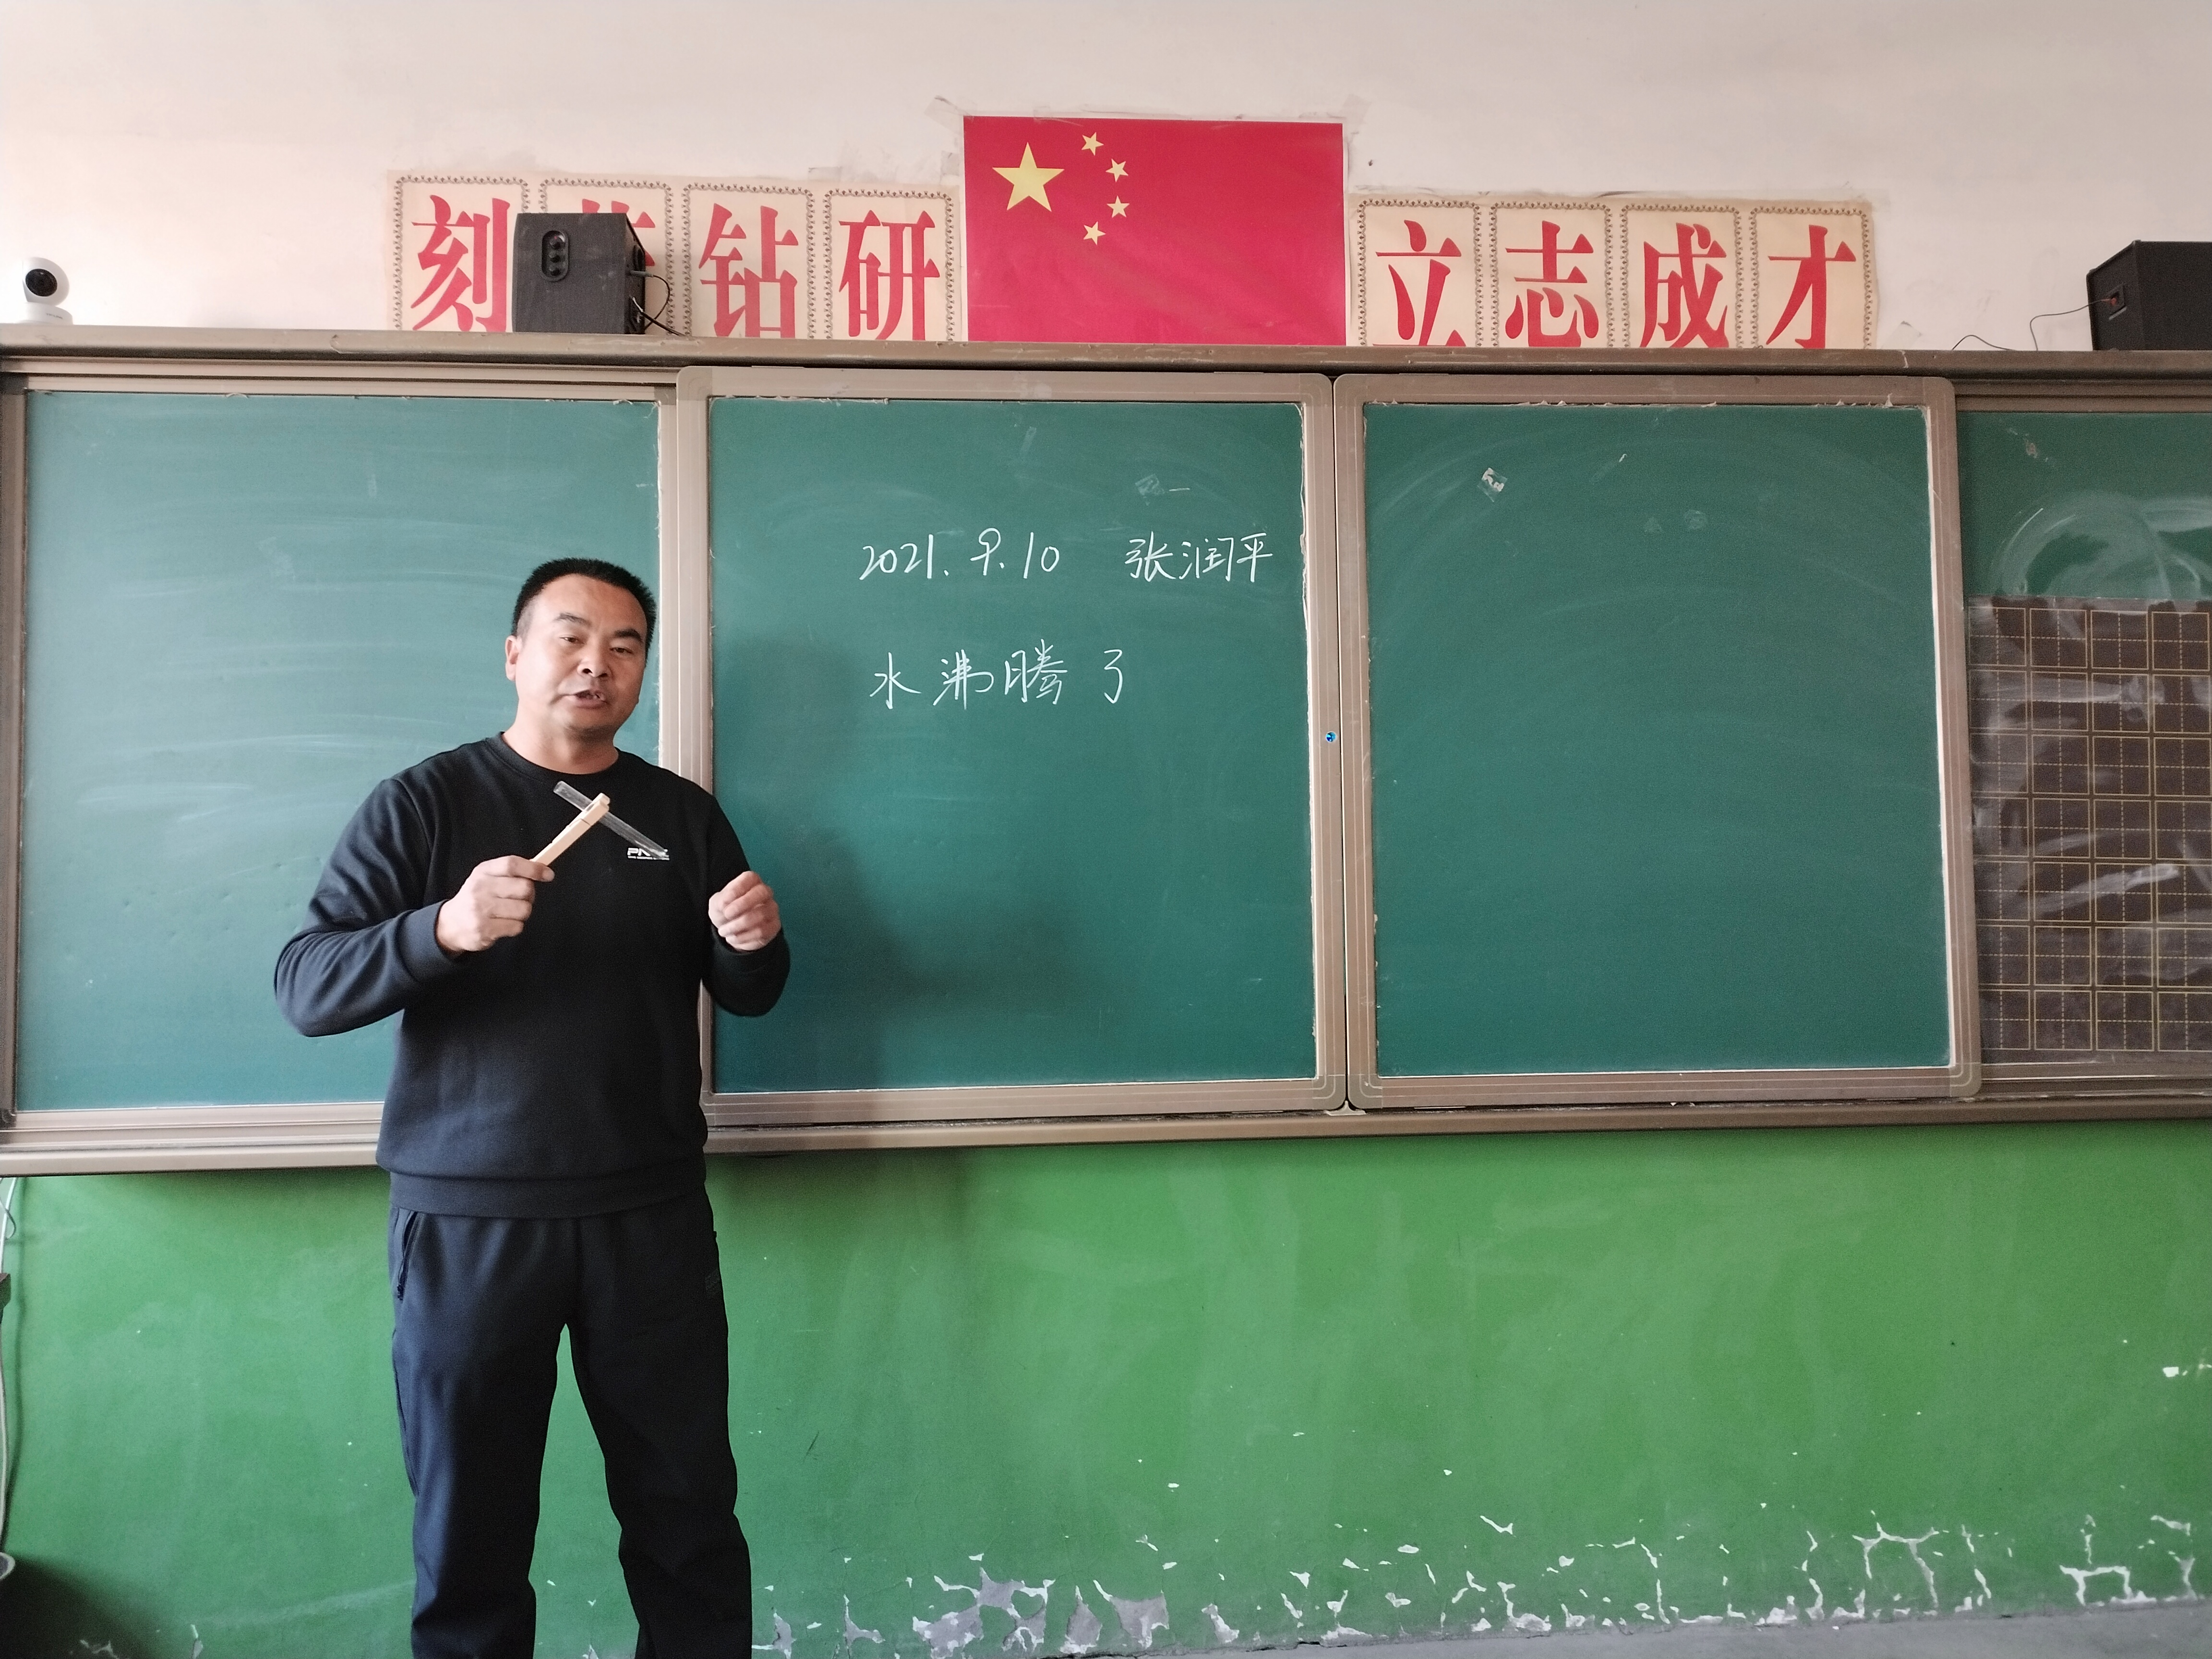 刻 钻研 立志成才
2021.9.10 张润平
水沸腾了